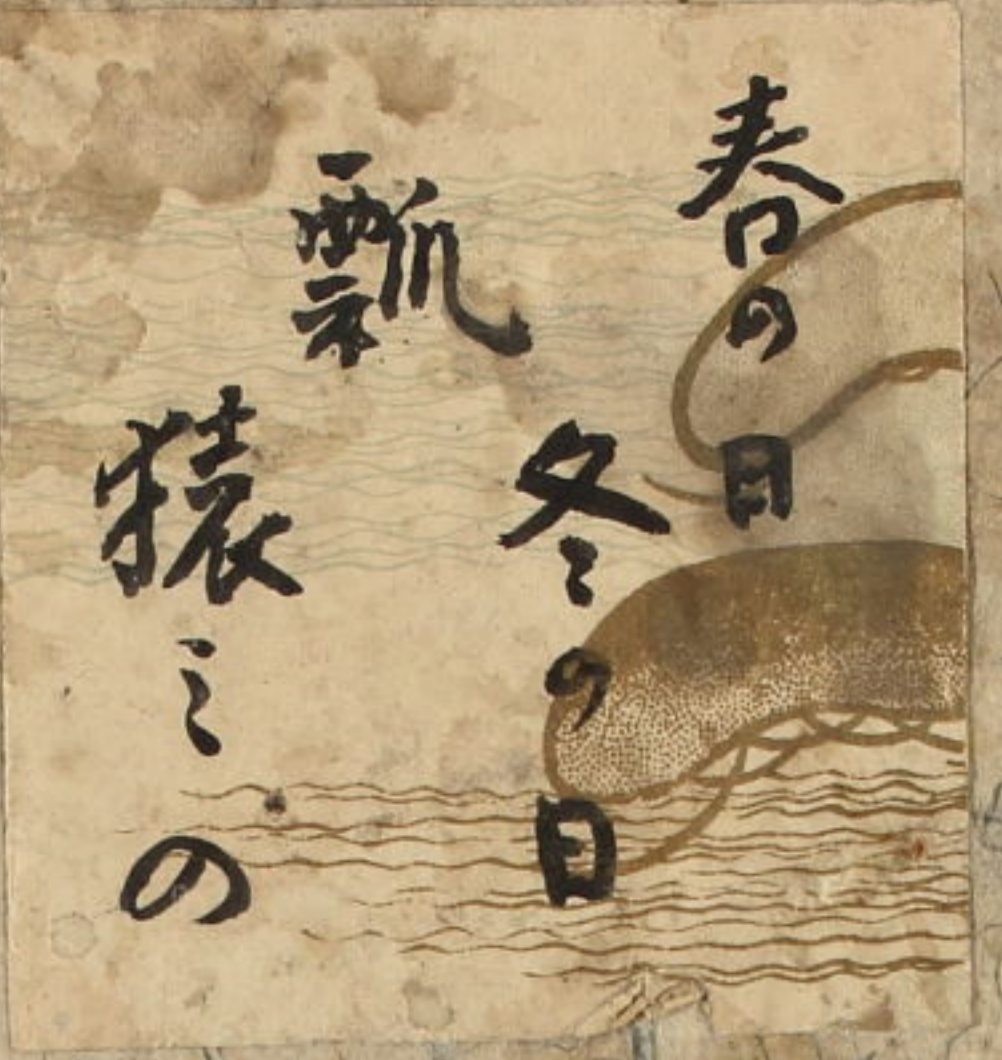 春の日
冬の日
瓢
猿ミの